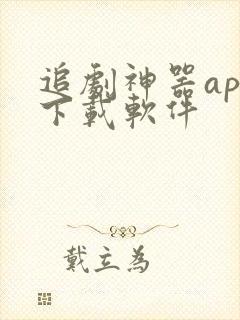 追劇神器ap
下載軟件
戴立為